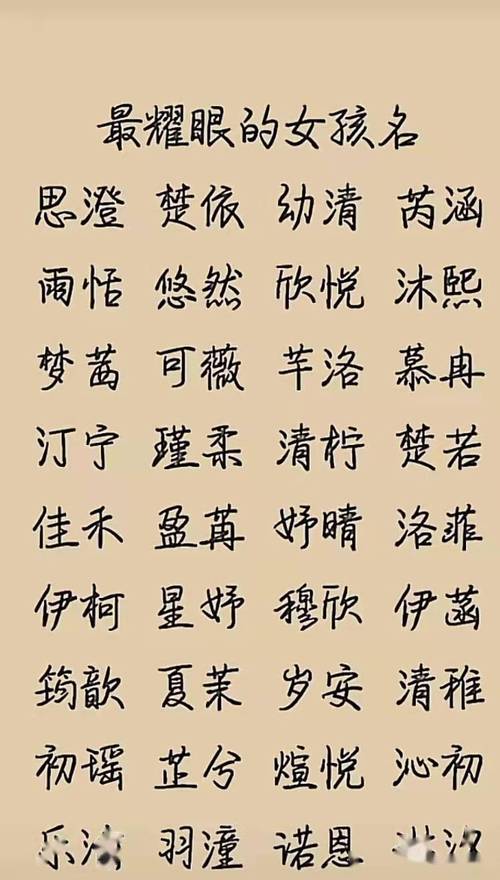 最耀眼的女孩名
思澄 楚依 幼清 芮涵
雨恬 悠然 欣悦 沐熙
梦茜 可薇 芊洛 慕冉
汀宁 瑾柔 清柠 楚若
佳禾 盈苒 妤晴 洛菲
伊柯 星妤 穆欣 伊菡
筠歆 夏茉 岁安 清稚
初瑶 芷兮 煊悦 沁初
乐 羽潼 诺恩